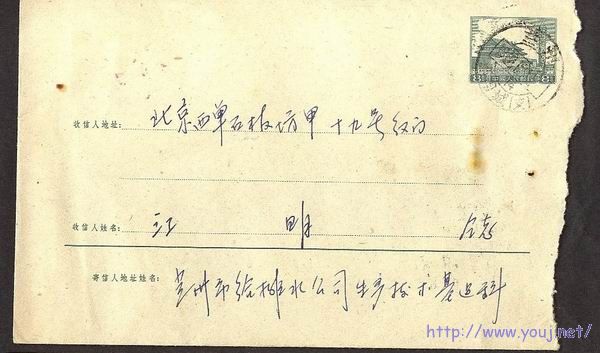 8 中国人民邮政 8
收信人地址： 北京西单石板房甲十九号红门
收信人姓名： 江 明 同志
寄信人地址姓名： 兰州市给排水公司生产技术基建科
http://www.youj.net/